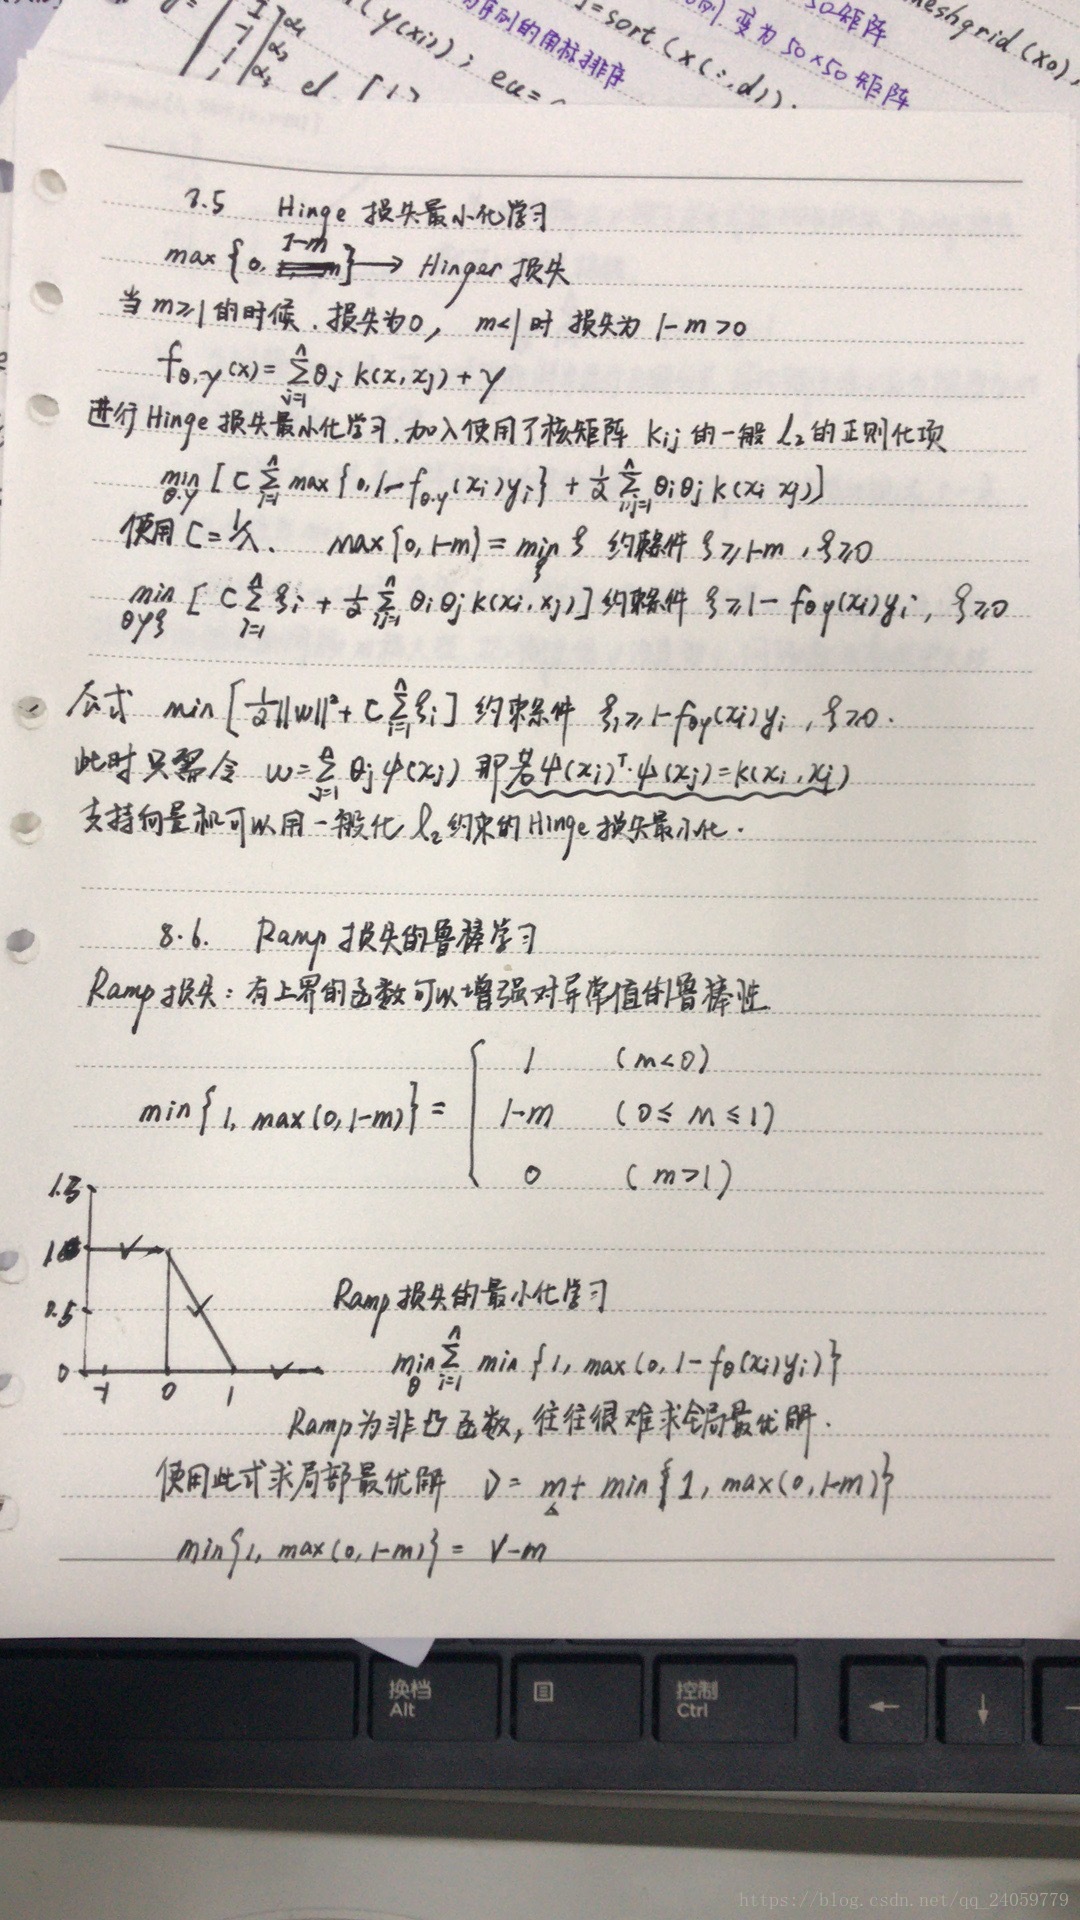 (y(xi)); eu=
的用校排序
=sort(x(:,d)).
50矩阵
变为50×50矩阵
meshgrid(x0),
8.5 Hinge 损失最小化学习
max{0, 1-m}→ Hinger 损失
当m≥1的时候.损失为0, m<1时 损失为 1-m>0
fθ,γ(x)=Σⁿⱼ₌₁θj K(x,xj)+γ
进行Hinge损失最小化学习.加入使用了核矩阵 Kij的一般 l₂的正则化项
min θ.γ [C Σⁿᵢ₌₁ max{0,1-fθ.γ(xi)yi}+½Σⁿᵢⱼ₌₁ θiθj K(xi xj)]
使用C=1/λ. max{0,1-m}=min ξ ξ 约束条件 ξ≥1-m,ξ≥0
min θγξ [CΣⁿᵢ₌₁ξi+½Σⁿᵢⱼ₌₁ θiθj K(xi,xj)]约束条件 ξ≥1-fθγ(xi)yi,ξ≥0
公式 min[½||w||²+CΣⁿᵢ₌₁ξi] 约束条件 ξi≥1-fθγ(xi)yi,ξ≥0.
此时只需令 w=Σⁿⱼ₌₁ θjψ(xj) 那若ψ(xi)ᵀ·ψ(xj)=K(xi,xj)
支持向量机可以用一般化l₂约束的Hinge损失最小化.
8.6. Ramp 损失的鲁棒学习
Ramp损失:有上界的函数可以增强对异常值的鲁棒性
1 (m<0)
min{1, max(0,1-m)}= 1-m (0≤m≤1)
0 (m>1)
1.5
1
0.5
0
-1 0 1
Ramp损失的最小化学习
min θ Σⁿᵢ₌₁ min{1, max(0,1-fθ(xi)yi)}
Ramp为非凸函数,往往很难求全局最优解.
使用此式求局部最优解 V=m+min{1, max(0,1-m)}
min{1, max(0,1-m)}= V-m
换档
Alt
控制
Ctrl
https://blog.csdn.net/qq_24059779